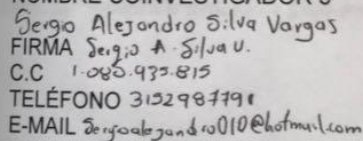 NOMBRE COINVESTIGADOR
Sergio Alejandro Silva Vargas
FIRMA Sergio A. Silva V.
C.C 1.085.935.815
TELÉFONO 3152987791
E-MAIL Sergioalejandro010@hotmail.com